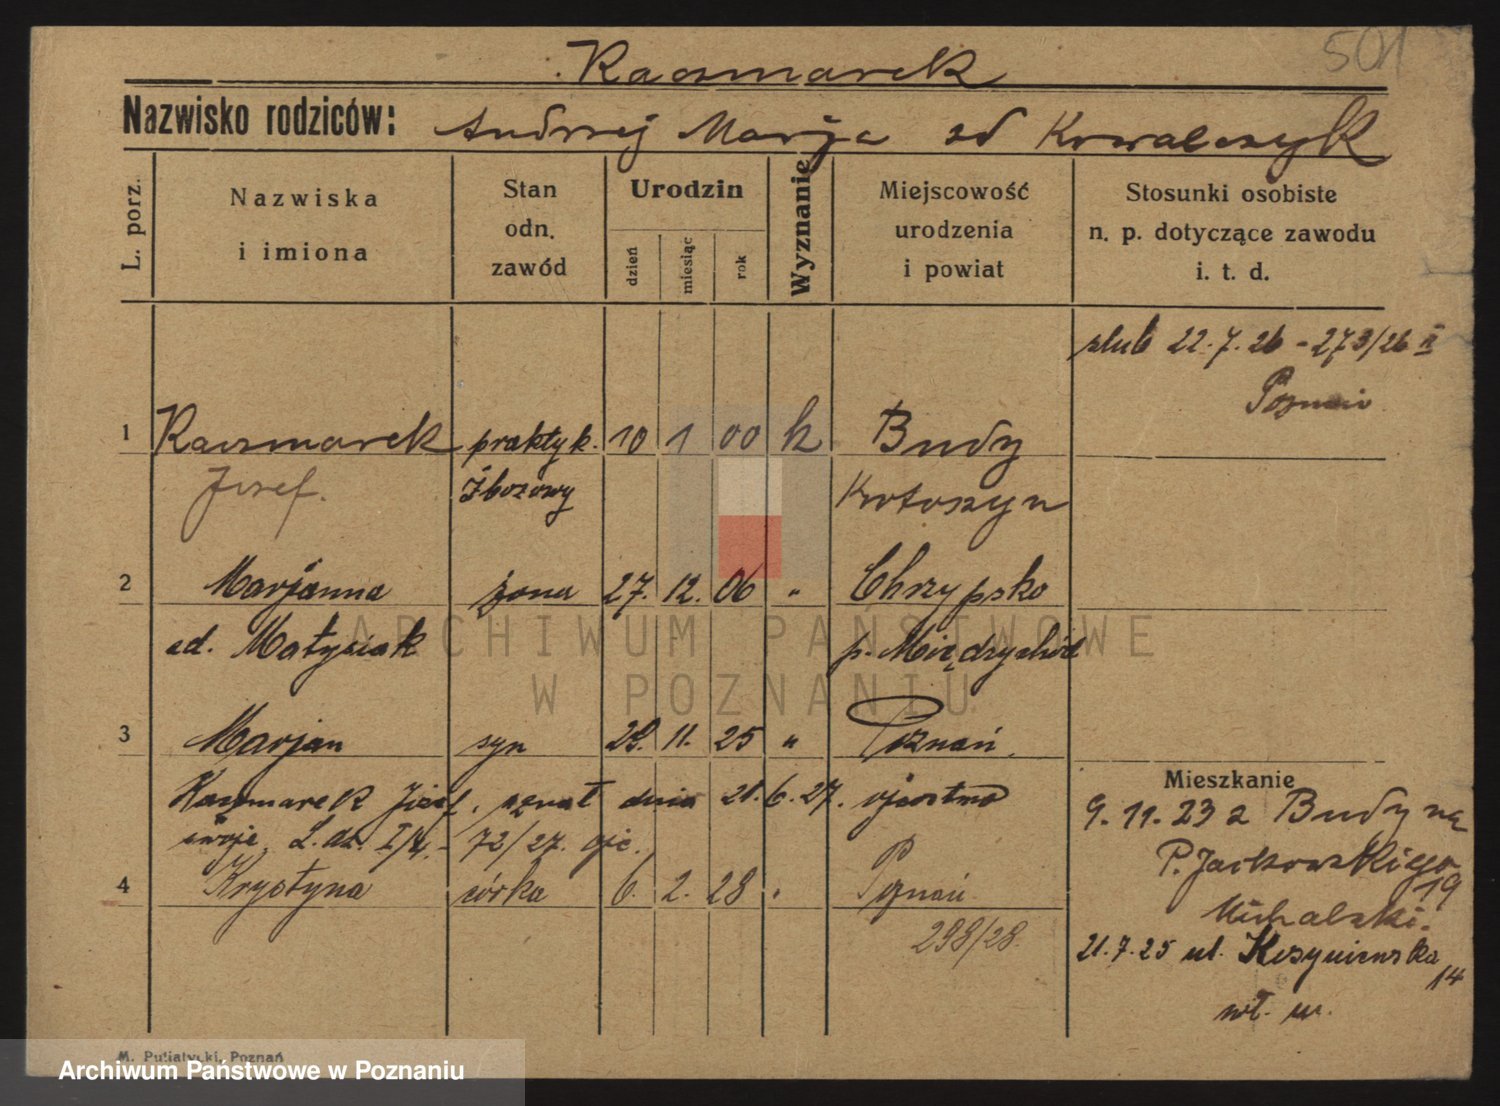 501
Kaczmarek
Nazwisko rodziców: Andrzej Marja zd Kowalczyk
L. porz.
Nazwiska
i imiona
Stan
odn.
zawód
Urodzin
dzień
miesiąc
rok
Wyznanie
Miejscowość
urodzenia
i powiat
Stosunki osobiste
n. p. dotyczące zawodu
i. t. d.
ślub 22.7.26 - 273/26 II
Poznań
1 Kaczmarek praktyk. 10 1 00 k Budy
Józef. Zbożowy Krotoszyn
2 Marjanna żona 27. 12. 06 " Chrzypsko
zd. Matysiak p. Międzychód
3 Marjan syn 28. 11. 25 " Poznań.
Kaczmarek Józef, uznał dnia 21.6.27. ojcostwo
swoje. L. dz. I/4. - 72/27. ojc.
4 Krystyna córka 6. 2. 28 " Poznań
298/28.
Mieszkanie
9.11.23 z Budy na
P. Jackowskiego
19
Michalski.
21.7.25 ul. Kosynierska
14
wł. m.
M. Putiatycki, Poznań
ARCHIWUM PAŃSTWOWE
W POZNANIU
Archiwum Państwowe w Poznaniu